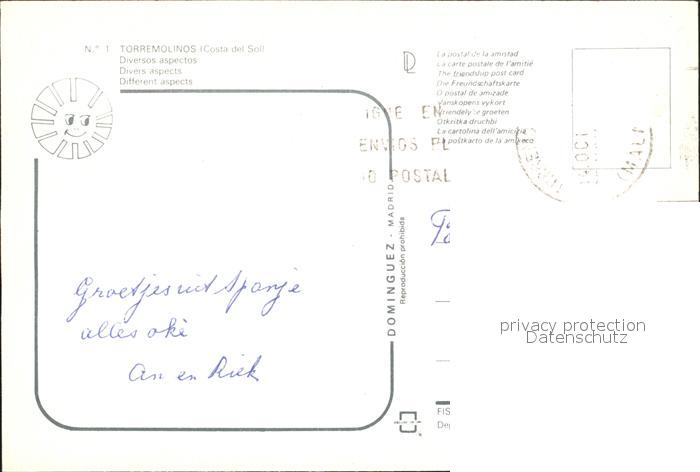 N.º 1 TORREMOLINOS (Costa del Sol)
Diversos aspectos
Divers aspects
Different aspects
La postal de la amistad
La carte postale de l'amitié
The friendship post card
Die Freundschaftskarte
O postal de amizade
Vanskopens vykort
Vriendelyke groeten
Otkritka druchbi
La cartolina dell'amicizia
La poŝtkarto de la amikeco
ENVIOS
POSTAL
OCT
(MALA
DOMINGUEZ - MADRID
Reproducción prohibida
Groetjes uit Spanje
alles oké
An en Riek
privacy protection
Datenschutz
FIS
De